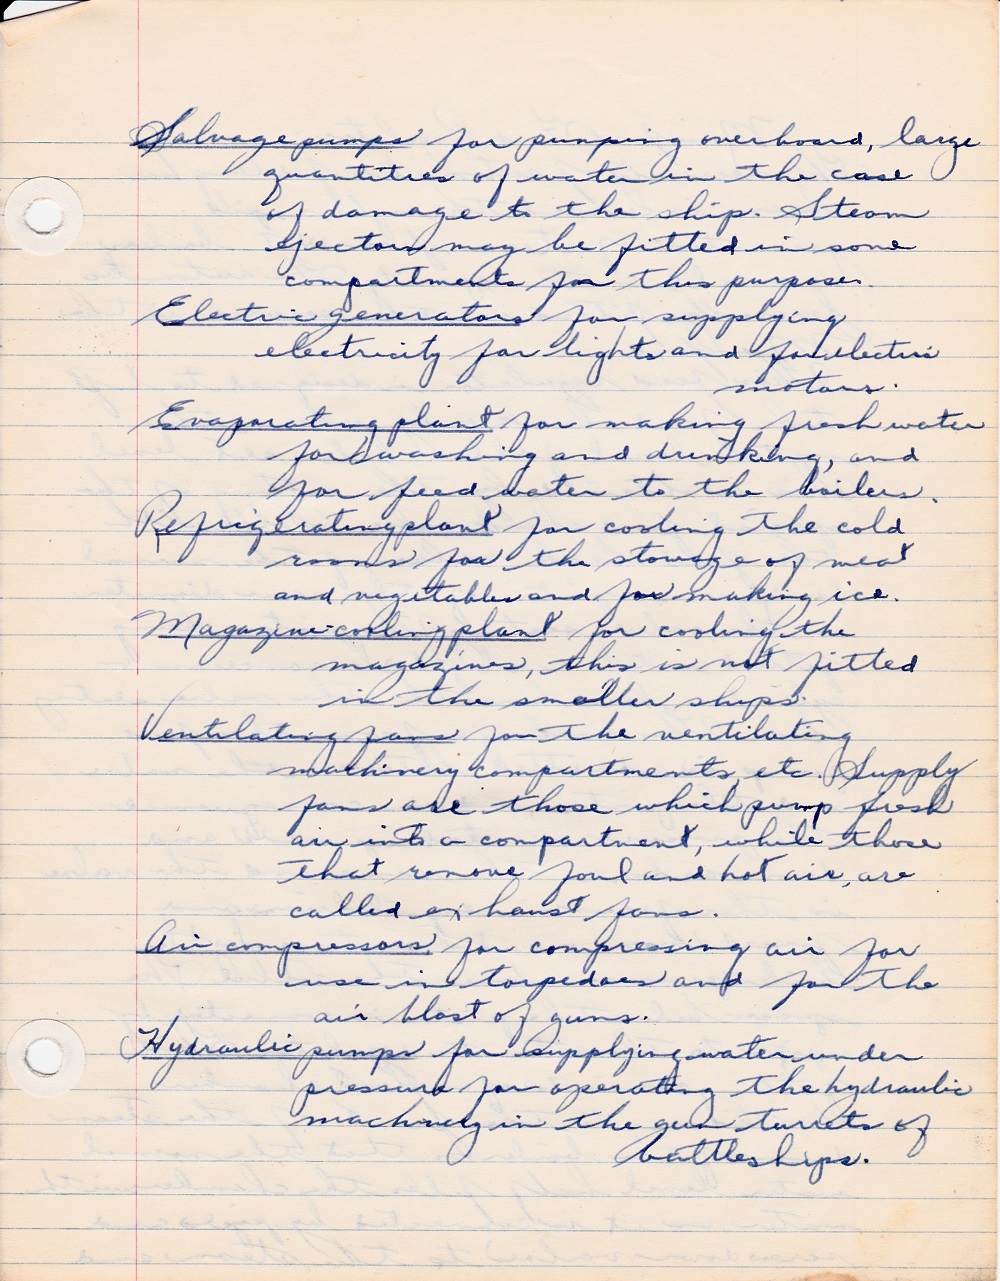 Salvage pumps for pumping overboard, large
quantities of water in the case
of damage to the ship. Steam
ejectors may be fitted in some
compartments for this purpose.
Electric generators for supplying
electricity for lights and for electric
motors.
Evaporating plant for making fresh water
for washing and drinking, and
for feed water to the boilers.
Refrigerating plant for cooling the cold
rooms for the stowage of meat
and vegetables and for making ice.
Magazine-cooling plant for cooling the
magazines, this is not fitted
in the smaller ships.
Ventilating fans for the ventilating
machinery compartments, etc. Supply
fans are those which pump fresh
air into a compartment, while those
that remove foul and hot air, are
called exhaust fans.
Air compressors for compressing air for
use in torpedoes and for the
air blast of guns.
Hydraulic pumps for supplying water under
pressure for operating the hydraulic
machinery in the gun turrets of
battleships.